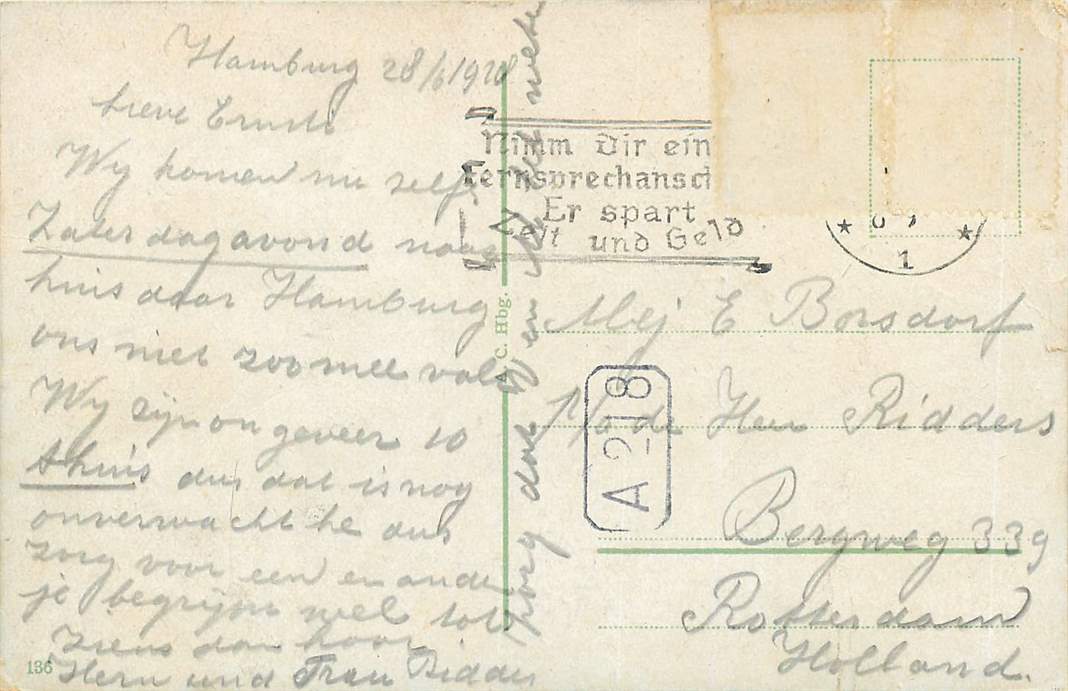 Hamburg 28/6 1928
Lieve Ernste
Wy komen nu zelfs
Zaterdagavond naar
huis daar Hamburg
ons niet zoo mee valt
Wy zijn ongeveer 10
thuis dus dat is nog
onverwacht he dus
zorg voor een en ander
je begrijpt wel tot
ziens dan hoor
Herrn und Frau Ridders
zorg dat W en M het weten
136
A C. Hbg.
Nimm Dir ein
Fernsprechansch
Er spart
Zeit und Geld
1
A 218
Mej E Borsdorf
p/a de Heer Ridders
Bergweg 339
Rotterdam
Holland.